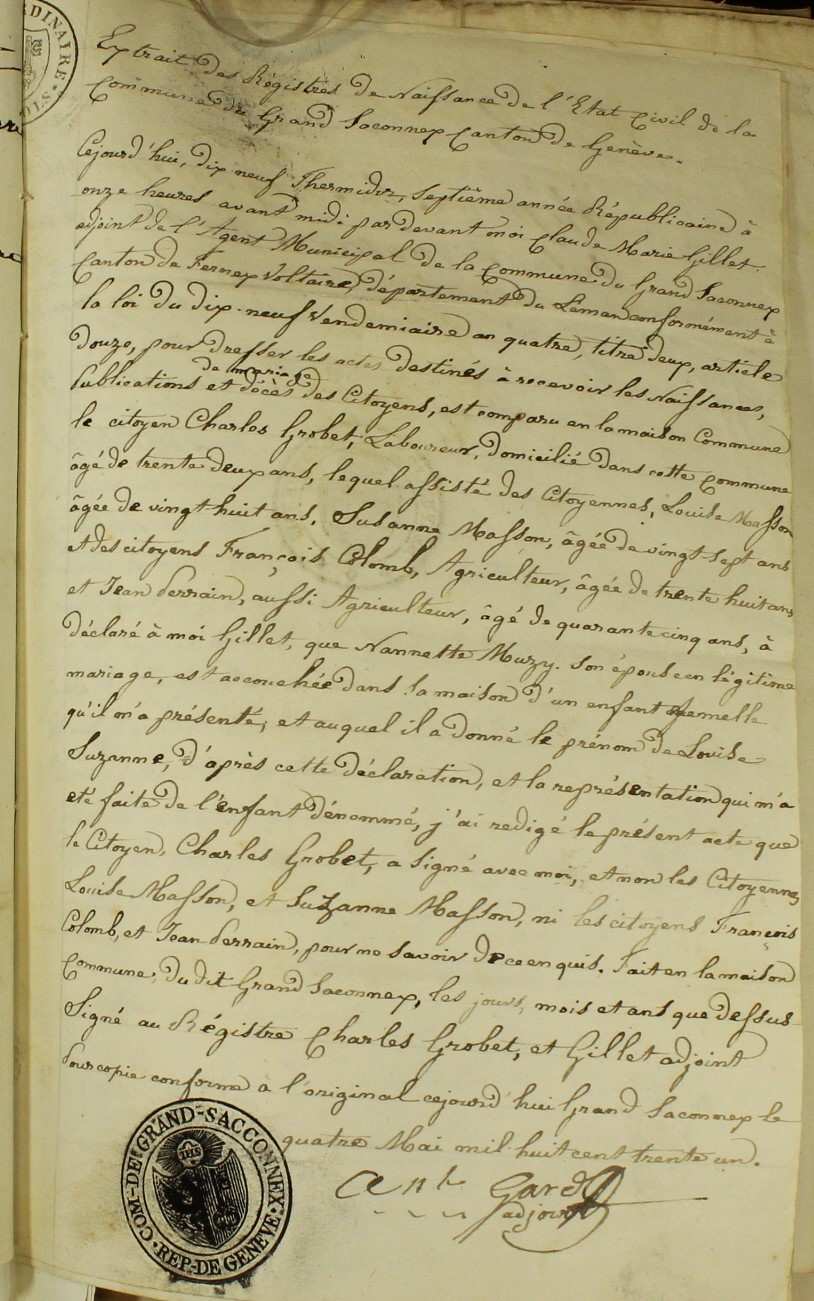 Extrait des Régistres de Naissance de l'Etat Civil de la
Commune du Grand Saconnex Canton de Genève.
Cejourd'hui, dix neuf Thermidor, septième année Républicaine à
onze heures avant midi par devant moi Claude Marie Gillet
adjoint de l'Agent Municipal de la Commune du Grand Saconnex
Canton de Fernex Voltaire, département du Leman conformément à
la loi du dix-neuf Vendemiaire an quatre, titre deux, article
douze, pour dresser les actes destinés à recevoir les Naissances,
de mariage
Publications et décès des Citoyens, est comparu en la maison Commune
le citoyen Charles Grobet, Laboureur, domicilié dans cette Commune
âgé de trente deux ans, lequel assisté des Citoyennes, Louise Masson
âgée de vingt huit ans, Susanne Masson, âgée de vingt sept ans
et des citoyens François Colomb, Agriculteur, âgée de trente huit ans
et Jean Perrain, aussi Agriculteur, âgé de quarante cinq ans, à
déclaré à moi Gillet, que Nannette Muzy. son épouse en légitime
mariage, est accouchée dans la maison d'un enfant femelle
qu'il m'a présenté, et auquel il a donné le prénom de Louise
Suzanne, d'après cette déclaration, et la représentation qui m'a
eté faite de l'enfant dénommé, j'ai redigé le présent acte que
le Citoyen, Charles Grobet, a signé avec moi, et non les Citoyennes
Louise Masson, et Suzanne Masson, ni les citoyens François
Colomb, et Jean Perrain, pour ne savoir de ce enquis. Fait en la maison
Commune, du dit Grand Saconnex, les jours, mois et ans que dessus
Signé au Régistre Charles Grobet, et Gillet adjoint
Pour copie conforme a l'original cejourd'hui Grand Saconnex le
quatre Mai mil huit cent trente un.
adjoint
COM-DE-GRAND-SACCONNEX. REP-DE GENEVE
IHS